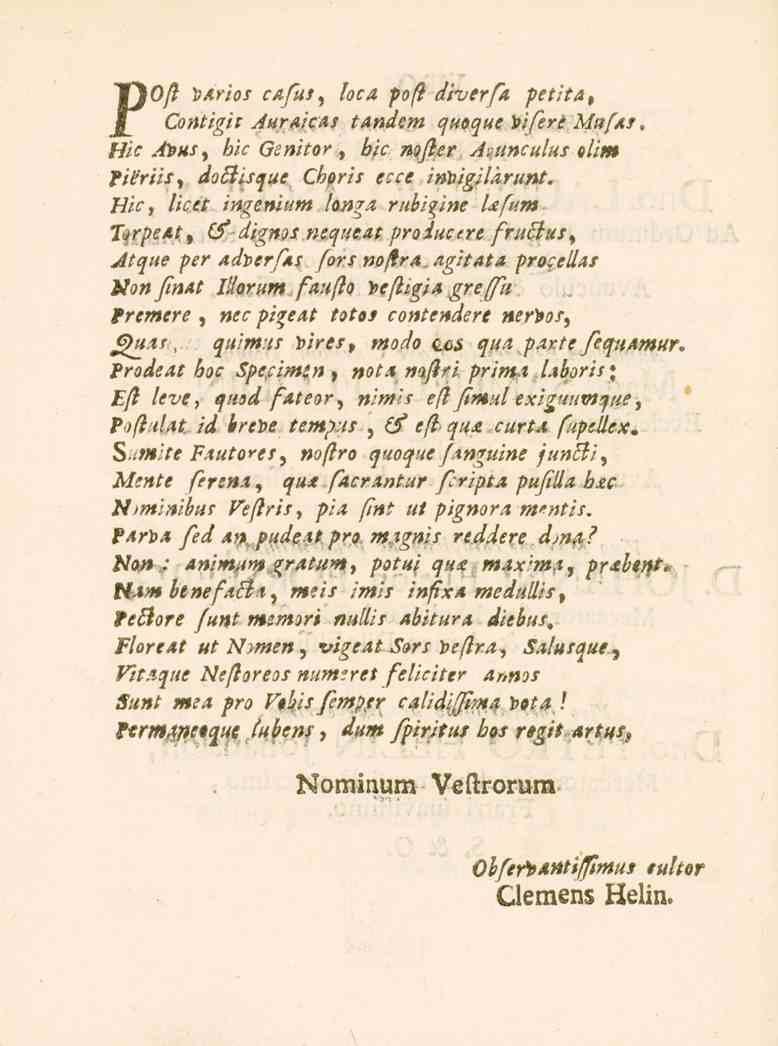 POſt varios caſus, loca poſt diverſa petita,
Contigit Auraicas tandem quoque viſere Muſas.
Hic Avus, hic Genitor, hic noſter Avunculus olim
Piëriis, doctisque Choris ecce invigilârunt.
Hic, licet ingenium longa rubigine læſum
Torpeat, & dignos nequeat producere fructus,
Atque per adverſas ſors noſtra agitata procellas
Non ſinat Illorum fauſto veſtigia greſſu
Premere, nec pigeat totos contendere nervos,
Quas quimus vires, modo eos qua parte ſequamur.
Prodeat hoc Specimen, nota noſtri prima laboris;
Eſt leve, quod fateor, nimis eſt ſimul exiguumque,
Poſtulat id breve tempus, & eſt quæ curta ſupellex.
Sumite Fautores, noſtro quoque ſanguine juncti,
Mente ſerena, quæ ſacrantur ſcripta puſilla hæc
Nominibus Veſtris, pia ſint ut pignora mentis.
Parva ſed an pudeat pro magnis reddere dona?
Non: animum gratum, potui quæ maxima, præbent.
Nam benefacta, meis imis infixa medullis,
Pectore ſunt memori nullis abitura diebus.
Floreat ut Nomen, vigeat Sors veſtra, Salusque,
Vitaque Neſtoreos numeret feliciter annos
Sunt mea pro Vobis ſemper calidiſſima vota!
Permaneoque lubens, dum ſpiritus hos regit artus,
Nominum Veſtrorum
Obſervantiſſimus cultor
Clemens Helin.